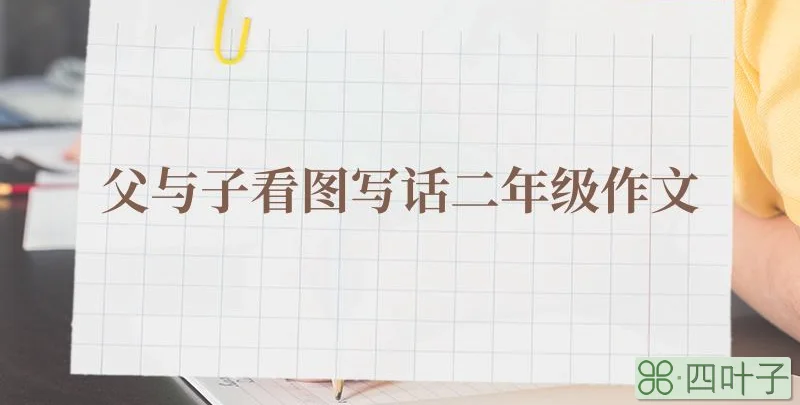 父与子看图写话二年级作文
四叶子